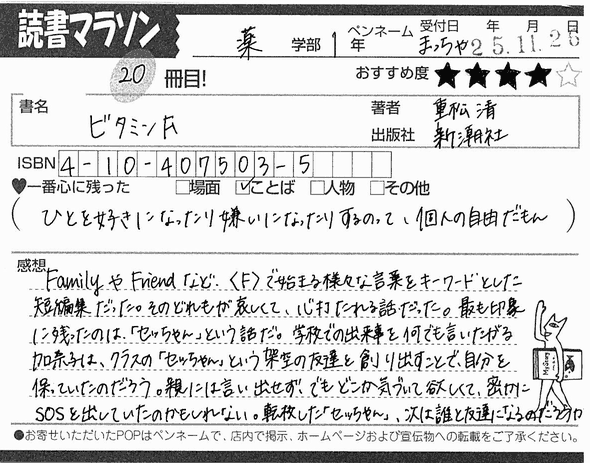 読書マラソン
薬 学部 1年 ペンネーム まっちゃ 受付日 年 月 日 25.11.26
20 冊目! おすすめ度 ★★★★☆
書名 ビタミンF 著者 重松 清
出版社 新潮社
ISBN 4-10-407503-5
♥一番心に残った □場面 ☑ことば □人物 □その他
(ひとを好きになったり嫌いになったりするのって、個人の自由だもん)
感想
Family や Friend など、〈F〉で始まる様々な言葉をキーワードとした
短編集だった。そのどれもが哀しくて、心打たれる話だった。最も印象
に残ったのは、「セッちゃん」という話だ。学校での出来事を何でも言いたがる
加奈子は、クラスの「セッちゃん」という架空の友達を創り出すことで、自分を
保っていたのだろう。親には言い出せず、でもどこか気づいて欲しくて、密かに
SOSを出していたのかもしれない。転校した「セッちゃん」、次は誰と友達になるのだろうか
●お寄せいただいたPOPはペンネームで、店内で掲示、ホームページおよび宣伝物への転載をご了承ください。